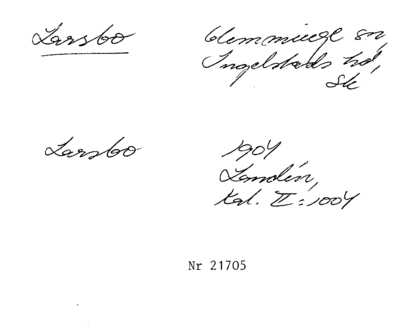 Larsbo
Glemminge sn,
Ingelstads hd,
Sk
Larsbo
1904
Landén,
Kal. II:1004
Nr 21705